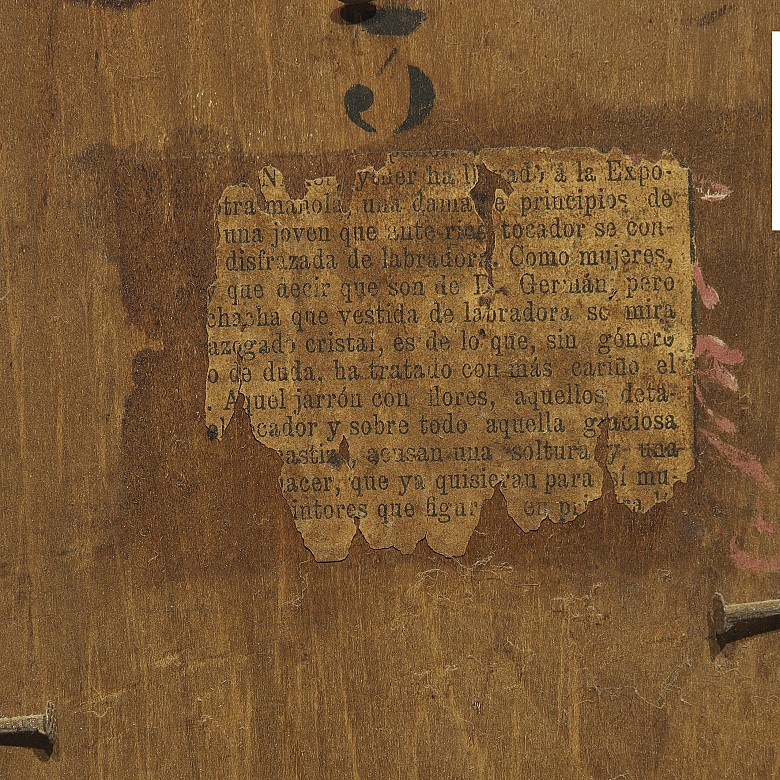 5
ha ado á la Expo-
otra manola, una dama de principios de
una joven que ante rico tocador se con-
disfrazada de labradora. Como mujeres,
que decir que son de D. Germán, pero
chacha que vestida de labradora se mira
azogado cristal, es de lo que, sin género
o de duda, ha tratado con más cariño el
. Aquel jarrón con flores, aquellos deta-
el ocador y sobre todo aquella graciosa
acusan una soltura y una
acer, que ya quisieran para sí mu-
intores que figur en